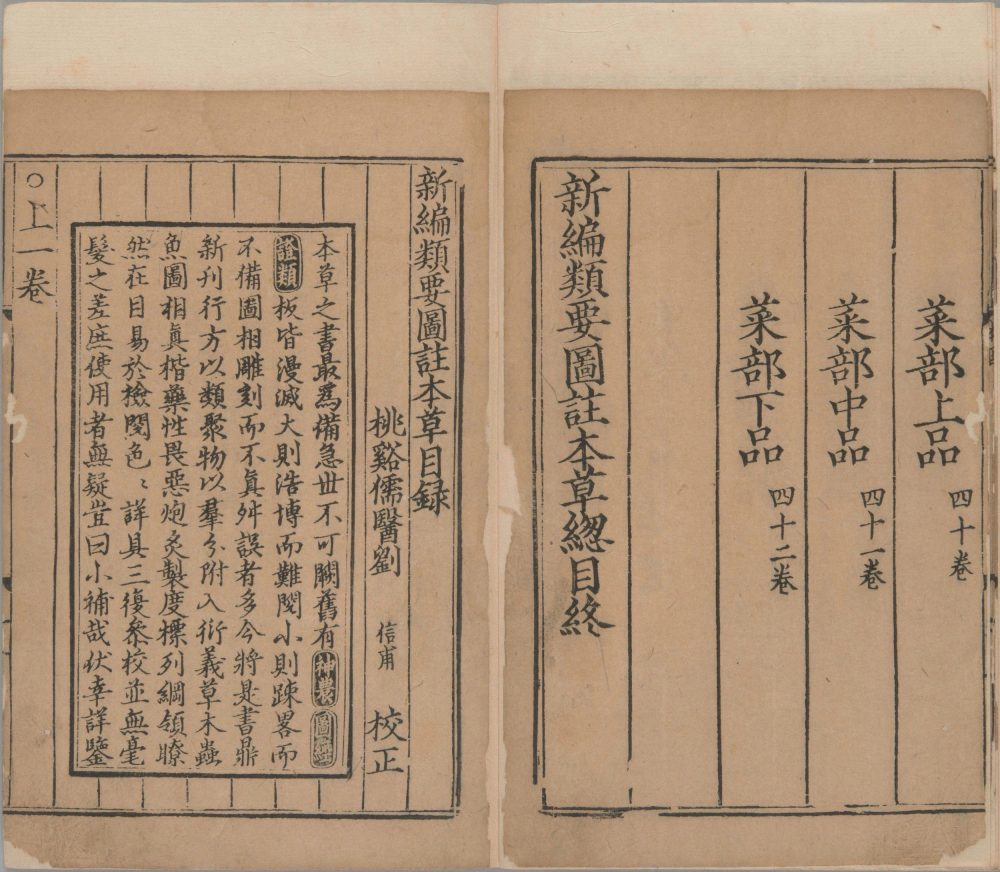 菜部上品 四十卷
菜部中品 四十一卷
菜部下品 四十二卷
新編類要圖註本草總目終
新編類要圖註本草目録
桃谿儒醫劉 信甫 校正
本草之書最爲備急世不可闕舊有神農圖經
證類板皆漫滅大則浩博而難閱小則踈畧而
不備圖相雕刻而不眞舛誤者多今將是書鼎
新刊行方以類聚物以羣分附入衍義草木蟲
魚圖相眞楷藥性畏惡炮炙製度標列綱領瞭
然在目易於檢閱色〻詳具三復叅校並無毫
髮之差庶使用者無疑豈曰小補哉伏幸詳鑒
○上一卷